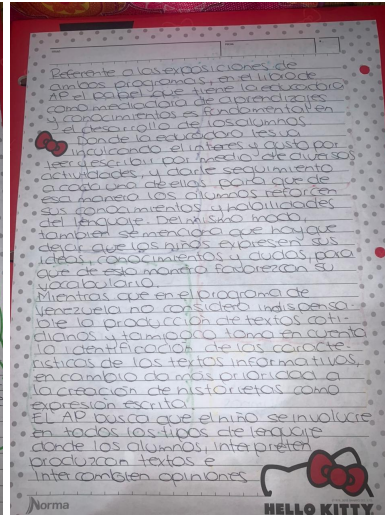 Referente a las exposiciones de
ambos programas, en el libro de
AP el papel que tiene la educadora
como mediadora de aprendizajes
y conocimientos es fundamental en
el desarrollo de los alumnos
Donde la educadora les va
inculcando el interes y gusto por
escribir por medio de diversas
actividades, y darle seguimiento
a cada uno de ellos para que de
esa manera los alumnos reforcen
sus conocimientos y habilidades
del lenguaje. Del mismo modo,
tambien se menciona que hay que
dejar que los niños expresen sus
ideas, conocimientos y dudas, para
que de esta manera favorezcan su
vocabulario.
Mientras que en el programa de
Venezuela no considero indispensa-
ble la producción de textos coti-
dianos y tampoco toman en cuenta
la identificación de las caracte-
risticas de los textos informativos,
en cambio da mas prioridad a
la creación de historietas como
expresión escrita.
EL AP busca que el niño se involucre
en todos los tipos de lenguaje
donde los alumnos, interpreten
produzcan textos e
intercambien opiniones
Norma
HELLO KITTY